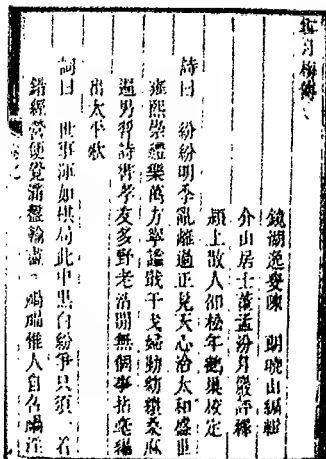 雪月梅傳
鏡湖逸叟陳 朗曉山編輯
介山居士董孟汾月巖評釋
潁上散人邵松年鶴巢校定
詩曰 紛紛明季亂離過正見天心洽太和盛世
雍熙崇禮樂萬方寧謐戢干戈婦勤紡績桑麻
遍男習詩書孝友多野老清閒無個事拈毫編
出太平歌
詞曰 世事渾如棋局此中黑白紛爭只須一着
錯經營便覺滿盤輸盡 禍福惟人自召